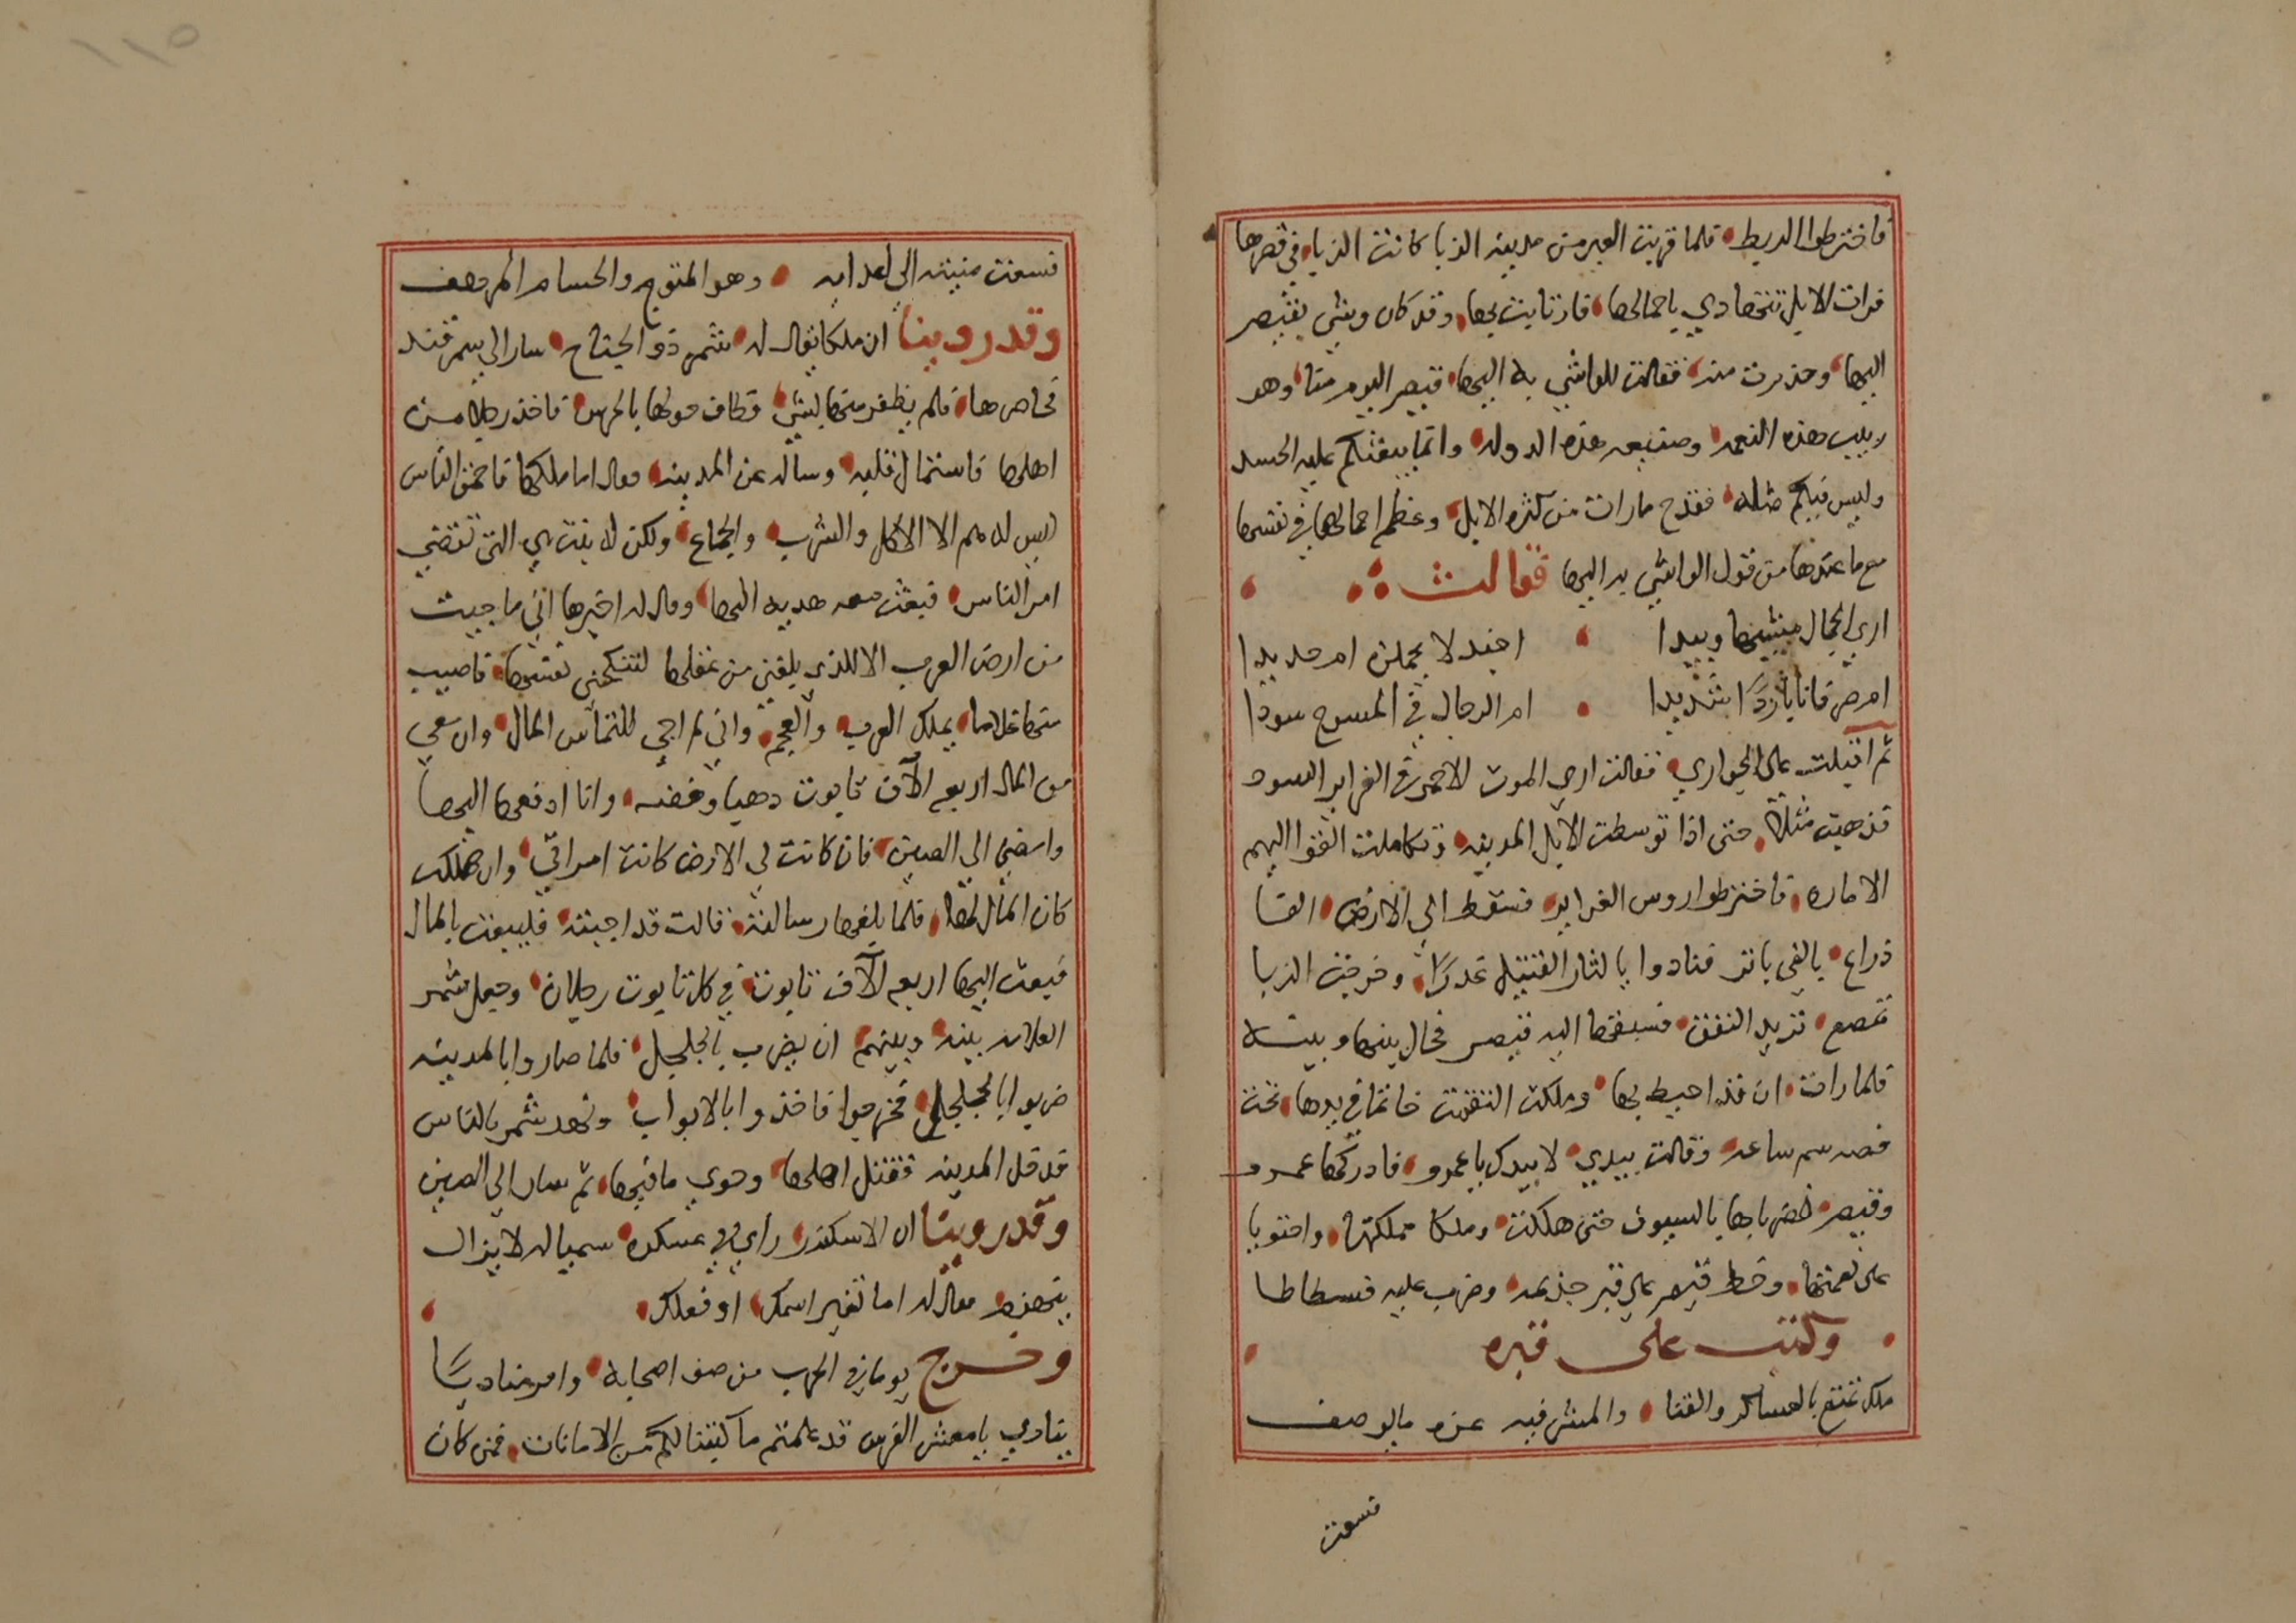 فاخترطوا الربط فلما قربت العير من مدينة الزبا كانت الزبا في قصرها
فرات الابل تتهادي باحمالها فارتابت بها وقد كان وشي بقيصر
اليها وحذرت منه فقالت للواشي به اليها قيصر اليوم منا وهو
ربيب هذه النعمه وصنيعه هذه الدوله وانما يبعثكم عليه الحسد
وليس فيكم مثله فقدح مارات من كثره الابل وعظم احمالها في نفسها
مع ما عندها من قول الواشي به اليها فقالت
اري الجمال مشيها وييدا اجندلا يحملن ام حديدا
ام صرفانا باردًا شديدا ام الرجال في المسوح سودا
ثم اقبلت على الجواري فقالت اري الموت الاحمر في الغراير السود
فذهبت مثلا حتى اذا توسطت الابل المدينه وتكاملت القوا اليهم
الاماره فاخترطوا روس الغراير فسقط الي الارض الفا
ذراع بالفي باتر فنادوا يا لثار القتيل غدرًا وخرجت الزبا
تمصع تريد النفق فسبقها اليه قيصر فحال بينها وبينه
فلما رات ان قد احيط بها وملكت التقمت خاتما في يدها تحت
فصه سم ساعه وقالت بيدي لا بيدك يا عمرو فادركها عمرو
وقيصر فضرباها بالسيوف حتى هلكت وملكا مملكتها واحتويا
على نعمتها وخط قيصر على قبر جذيمه وضرب عليه فسطاطا
وكتب على قبره
ملك تمتع بالعساكر والقنا والمشرفيه عزه مايوصف
فسعت
١١٥
فسعت منيته الى اعدايه وهو المتوج والحسام المرهف
وقد روينا ان ملكا يقال له شمر ذو الجناح سار الى سمرقند
فحاصرها فلم يظفر منها بشي فطاف حولها بالحرس فاخذ رجلا من
اهلها فاستمال قلبه وساله عن المدينه فقال اما ملكها فاحمق الناس
ليس له هم الا الاكل والشرب والجماع ولكن له بنت هي التي تقضي
امر الناس فبعث معه هديه اليها وقال له اخبرها اني ما جيت
من ارض العرب الا للذي بلغني من عقلها لتنكحني نفسها فاصيب
منها غلاما يملك العرب والعجم واني لم اجي للتماس المال وان معي
من المال اربعه الآف تابوت دهبا وفضه وانا ادفعها اليها
وامضي الي الصين فان كانت لي الارض كانت امراتي وان هلكت
كان المال لها فلما بلغها رسالته قالت قد اجبته فليبعث بالمال
فبعث اليها اربعه الآف تابوت في كل تابوت رجلان وجعل شمر
العلامه بينه وبينهم ان يضرب بالجلجل فلما صاروا بالمدينه
ضربوا بالجلجل فخرجوا فاخذوا بالابواب ونهد شمر بالناس
فدخل المدينه فقتل اهلها وحوي ما فيها ثم سار الي الصين
وقد روينا ان الاسكندر راي في عسكره سميا له لايزال
ينهزم فقال له اما تغير اسمك او فعلك
وخرج يوما في الحرب من صف اصحابه وامر مناديًا
ينادي يا معشر الفرس قد علمتم ما كتبنا لكم من الامانات فمن كان